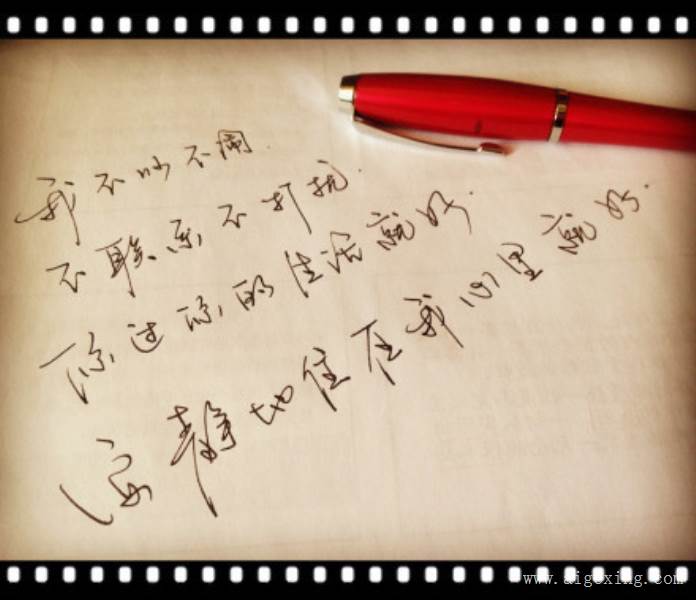 我不吵不闹.
不联系不打扰.
你过你的生活就好.
安静地住在我心里就好.
www.aigexing.com